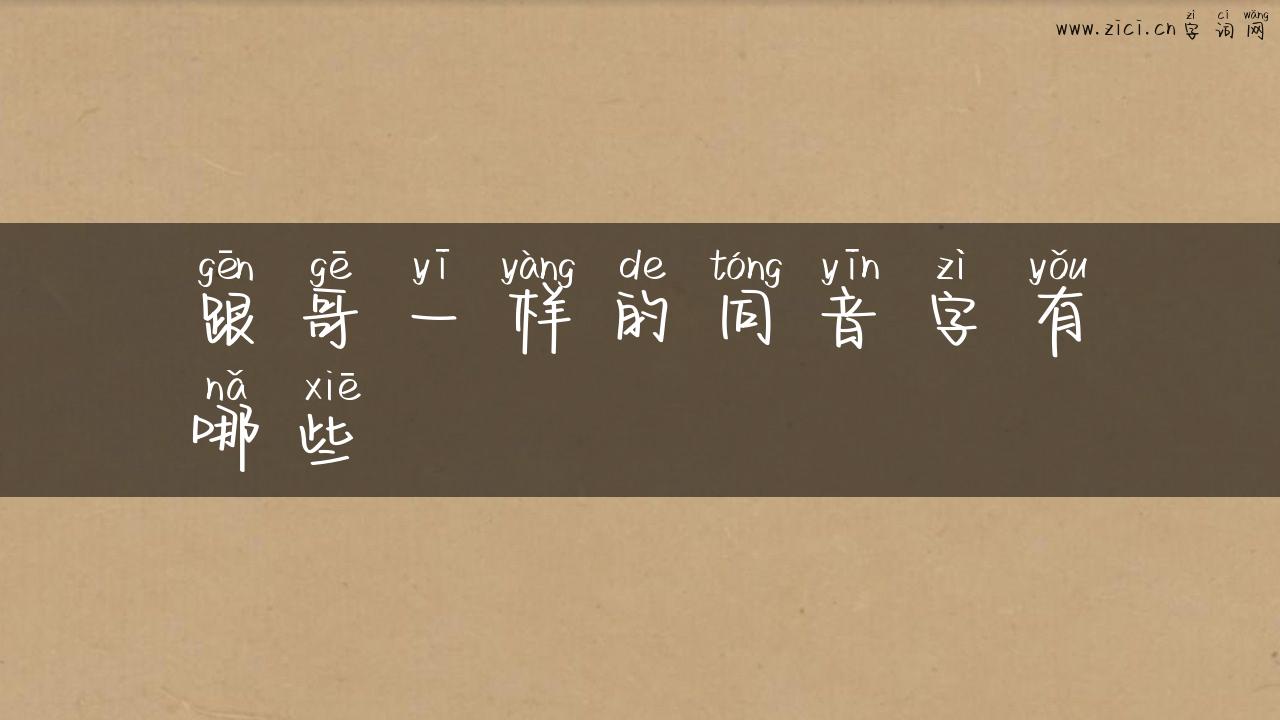 zì cí wǎng
www.zici.cn 字 词 网
gēn gē yī yàng de tóng yīn zì yǒu
跟 哥 一 样 的 同 音 字 有
nǎ xiē
哪 些